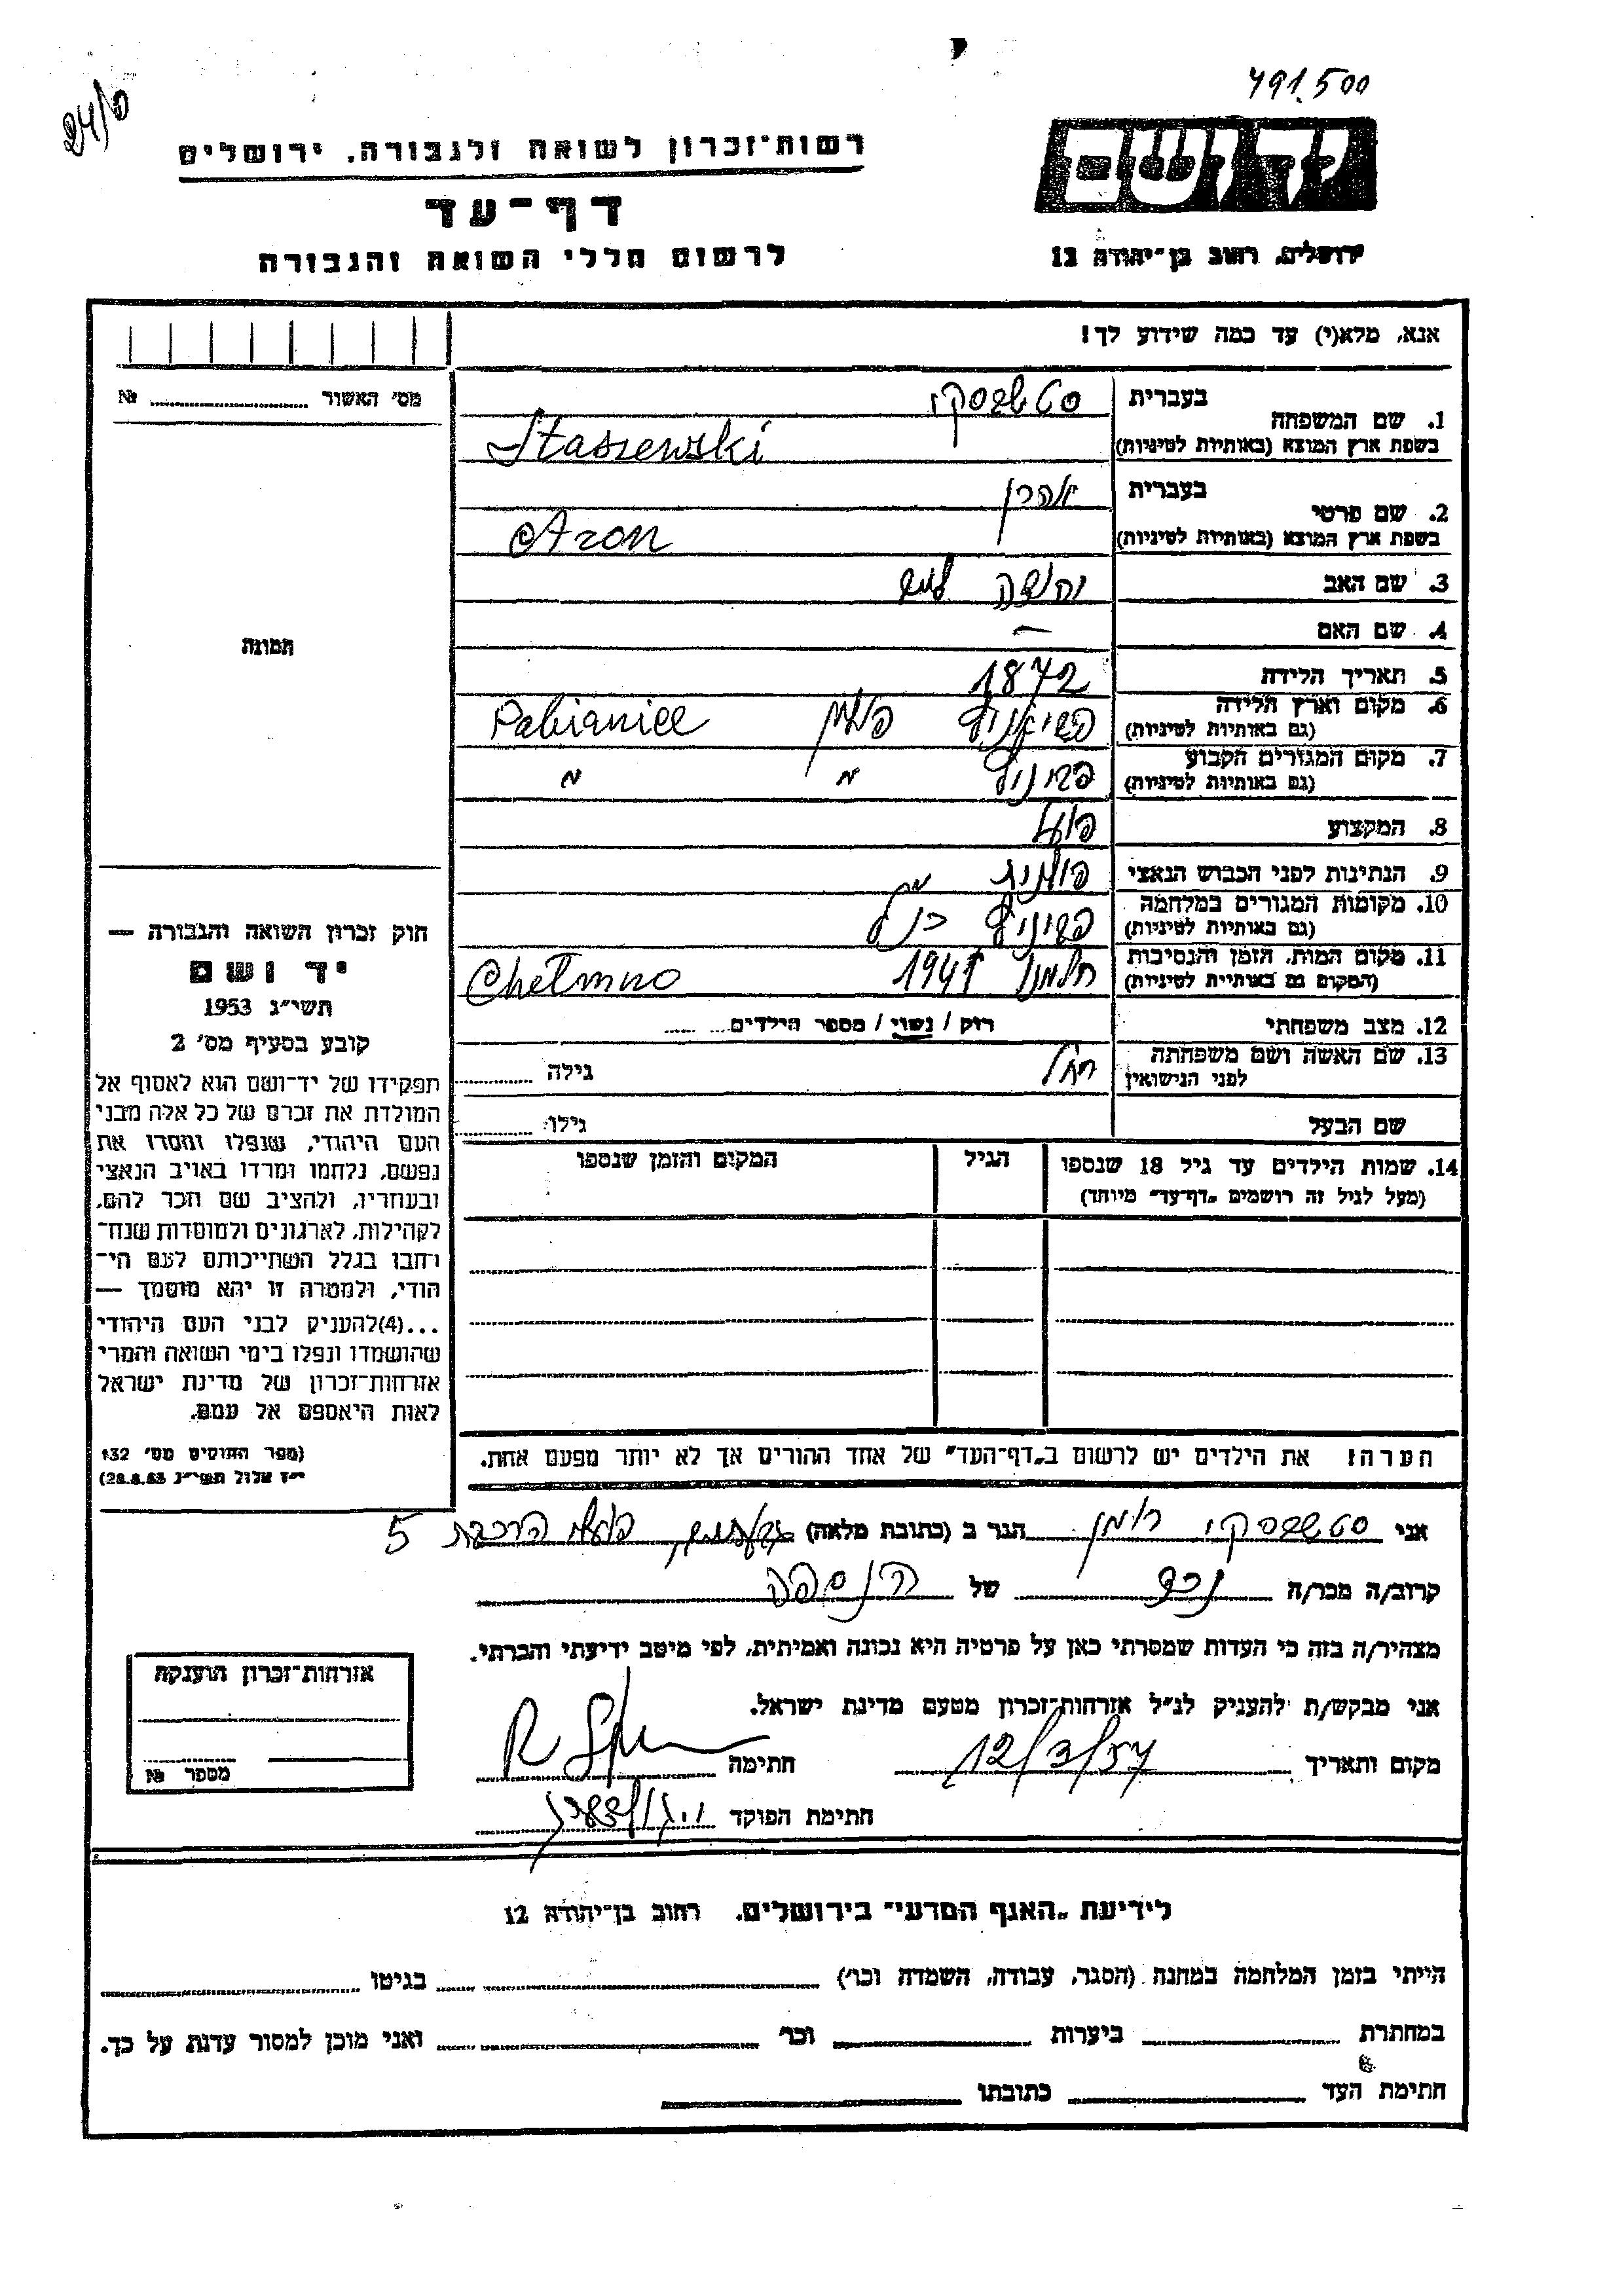 491.500
24/פ
רשות־זכרון לשואה ולגבורה, ירושלים
יד ושם
דף־עד
לרשום חללי השואה והגבורה
ירושלים, רחוב בן־יהודה 12
אנא, מלא(י) עד כמה שידוע לך!
מס׳ האשור № 
1. שם המשפחה בעברית סטשבסקי
בשפת ארץ המוצא (באותיות לטיניות) Staszewski
2. שם פרטי בעברית אהרן
בשפת ארץ המוצא (באותיות לטיניות) Aron
3. שם האב יהושה
4. שם האם —
תמונה
5. תאריך הלידה 1872
6. מקום וארץ הלידה פביאניץ פולין Pabianice
(גם באותיות לטיניות)
7. מקום המגורים הקבוע פביניץ " "
(גם באותיות לטיניות)
8. המקצוע פועל
9. הנתינות לפני הכבוש הנאצי פולנית
10. מקומות המגורים במלחמה פביניץ כנ"ל
(גם באותיות לטיניות)
11. מקום המות, הזמן והנסיבות חלמנו 1941 Chełmno
(המקום גם באותיות לטיניות)
12. מצב משפחתי רוק / נשוי / מספר הילדים
13. שם האשה ושם משפחתה רחל גילה
לפני הנישואין
שם הבעל גילו
14. שמות הילדים עד גיל 18 שנספו הגיל המקום והזמן שנספו
(מעל לגיל זה רושמים „דף־עד" מיוחד)
חוק זכרון השואה והגבורה —
יד ושם
תשי״ג 1953
קובע בסעיף מס׳ 2
תפקידו של יד־ושם הוא לאסוף אל
המולדת את זכרם של כל אלה מבני
העם היהודי, שנפלו ומסרו את
נפשם, נלחמו ומרדו באויב הנאצי
ובעוזריו, ולהציב שם וזכר להם,
לקהילות, לארגונים ולמוסדות שנח־
רחבו בגלל השתייכותם לעם הי־
הודי, ולמטרה זו יהא מוסמך —
...(4)להעניק לבני העם היהודי
שהושמדו ונפלו בימי השואה והמרי
אזרחות־זכרון של מדינת ישראל
לאות היאספם אל עמם.
(ספר החוקים מס׳ 132
י״ז אלול תשי״ג 28.8.53)
הערה: את הילדים יש לרשום ב„דף־העד" של אחד ההורים אך לא יותר מפעם אחת.
אני סטשבסקי רומן הגר ב (כתובת מלאה) גבעתיים, פועלי הרכבת 5
קרוב/ה מכר/ה נכד של הנספה
מצהיר/ה בזה כי העדות שמסרתי כאן על פרטיה היא נכונה ואמיתית, לפי מיטב ידיעתי והכרתי.
אני מבקש/ת להעניק לנ״ל אזרחות־זכרון מטעם מדינת ישראל.
מקום ותאריך 12/3/57 חתימה
חתימת הפוקד
אזרחות־זכרון הוענקה
מספר №
לידיעת „האגף המדעי" בירושלים, רחוב בן־יהודה 12
הייתי בזמן המלחמה במחנה (הסגר, עבודה, השמדה וכו׳) בגיטו
במחתרת ביערות וכו׳ ואני מוכן למסור עדות על כך.
חתימת העד כתובתו